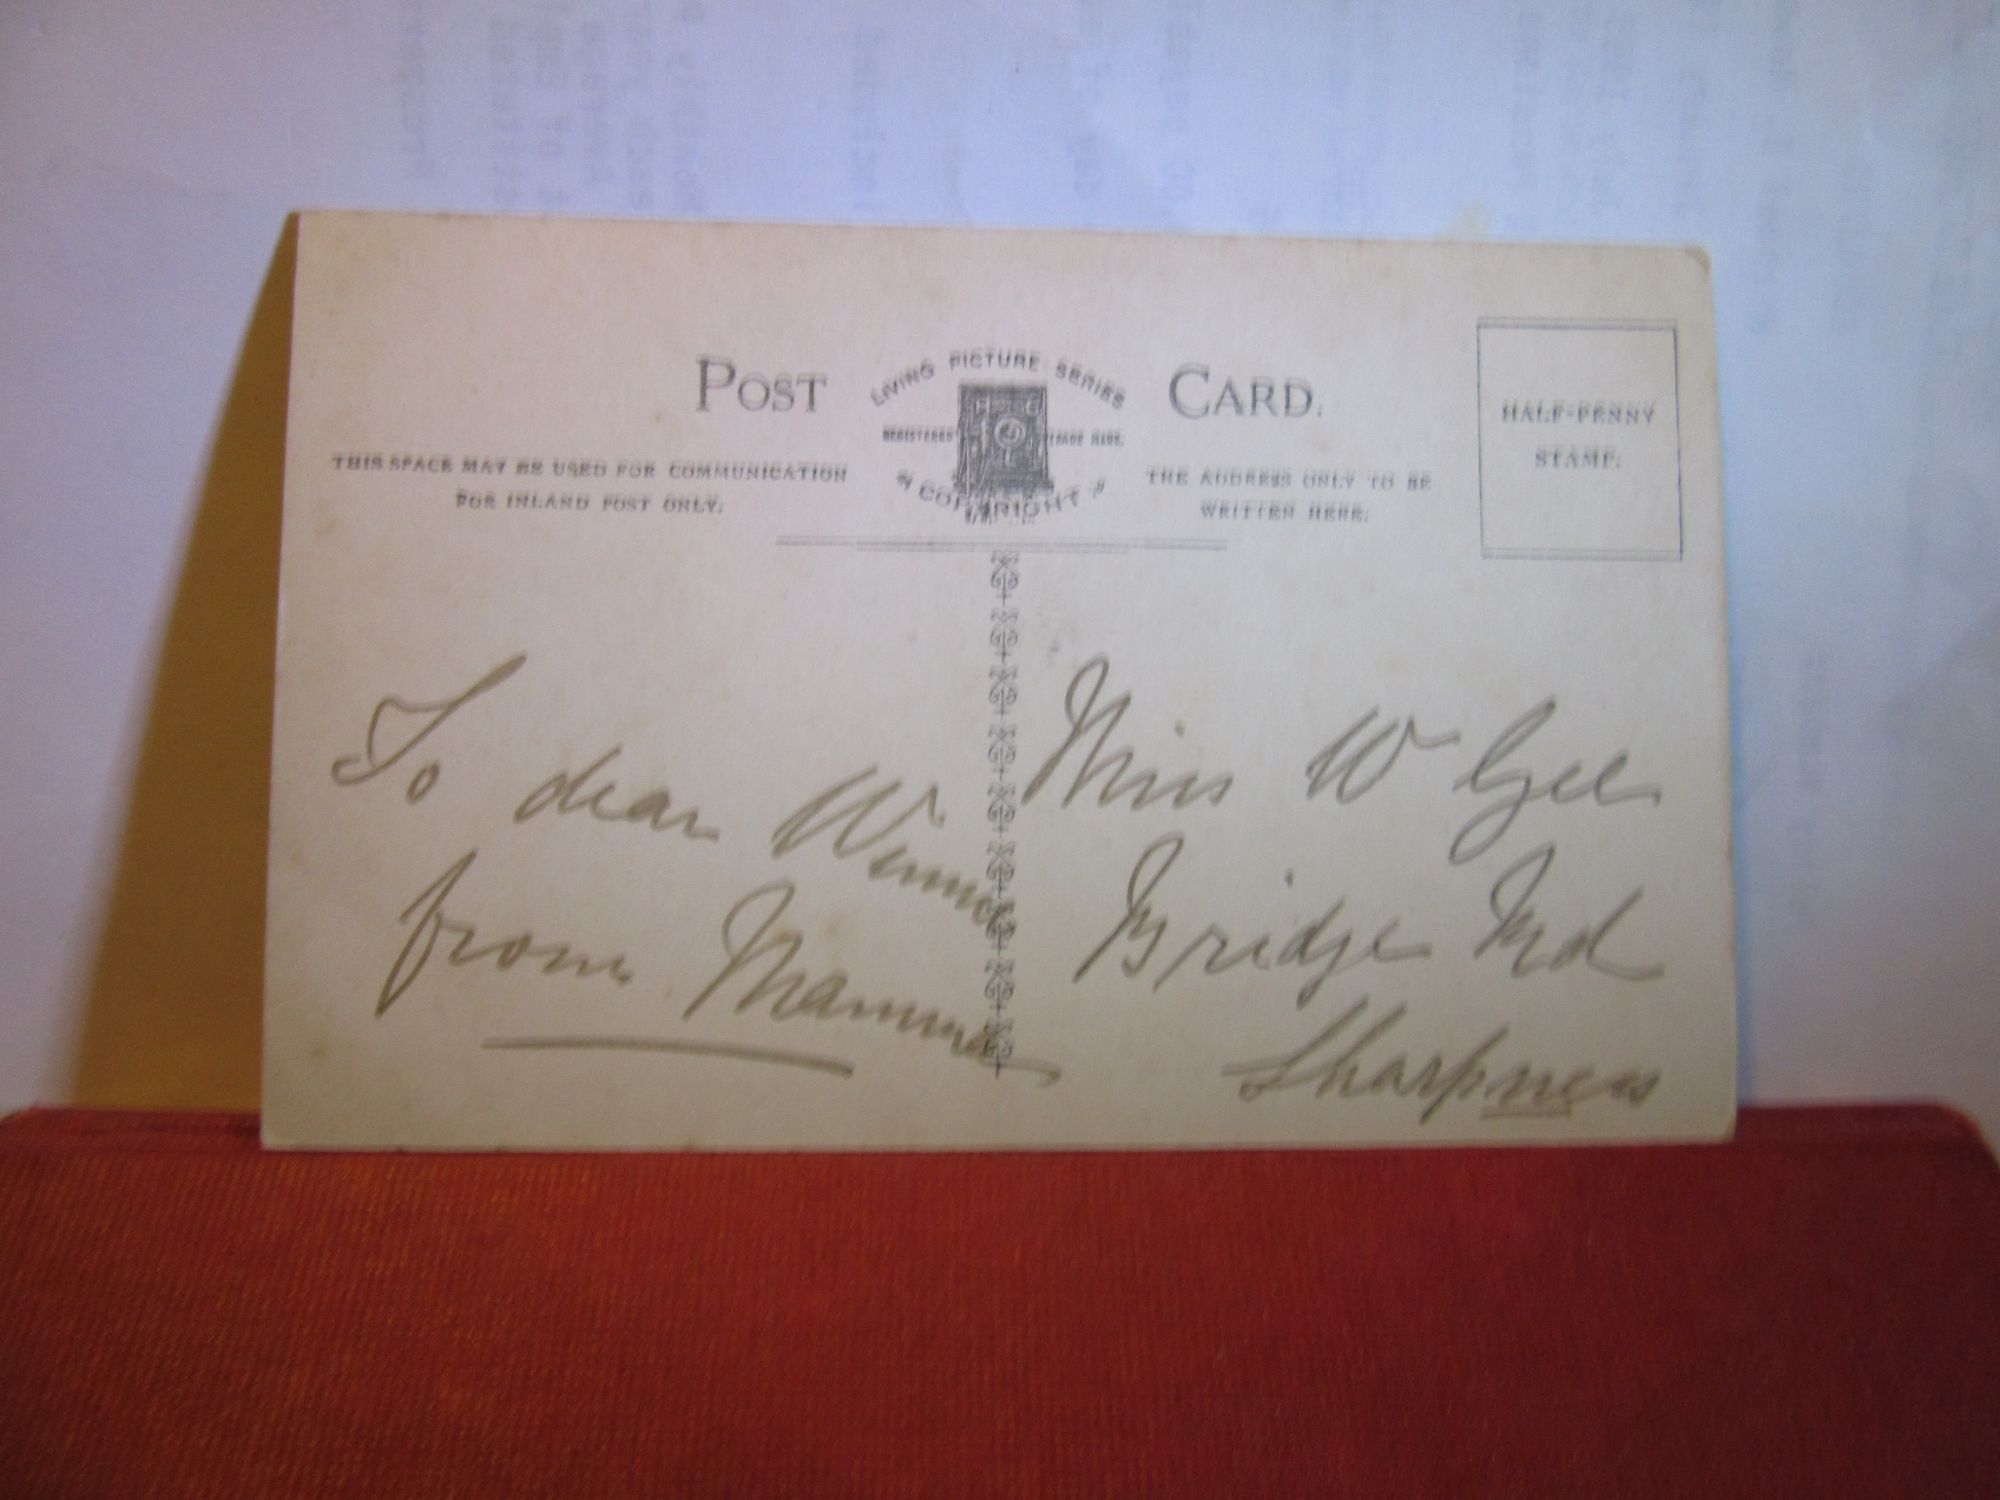 POST CARD.
LIVING PICTURE SERIES
REGISTERED TRADE MARK.
COPYRIGHT
THIS SPACE MAY BE USED FOR COMMUNICATION
FOR INLAND POST ONLY.
THE ADDRESS ONLY TO BE
WRITTEN HERE.
HALF-PENNY
STAMP.
To dear Winnie
from Mamma
Miss W Gee
Bridge Rd
Sharpness